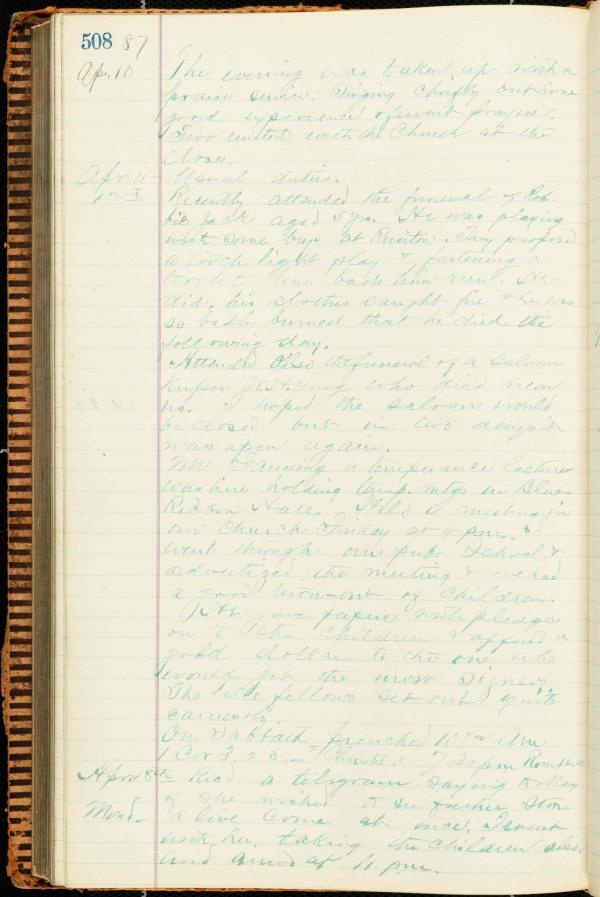 508 87
Ap. 10 The evening was taken up with a
praise service. Singing chiefly but some
good experience & fervent prayers.
Two united with the Church at the
close.
Apr 11- Usual duties.
17th Recently attended the funeral of Rob-
bie Jack aged 5 yrs. He was playing
with some boys at Ruiton. They proposed
a torch light play & fastening a
torch to his back him run. He
did, his clothes caught fire & he was
so badly burned that he died the
following day.
Attended also the funeral of a saloon
Keeper Young who died near
us. I hoped the saloon would
be closed but in two days it
was open again.
Mr Fanning a temperance lecturer
was here holding temp. mtgs in Blue
Ribbon Hall. Held a meeting in
our Church Friday at 4 pm. I
went through our pub. School &
advertized the meeting & we had
a good turn-out of children.
He gave papers with pledges
on to the children & offered a
gold dollar to the one who
would get the most signers.
The little fellows set out quite
earnestly.
On Sabbath preached 10 1/2 Am
1 Cor 3. 23. 7 30 pm
Apr 18th Recd a telegram saying to May
if she wished to see father Stone
Mond- alive come at once. I went
with her, taking the children also.
and arrived at 11. pm.